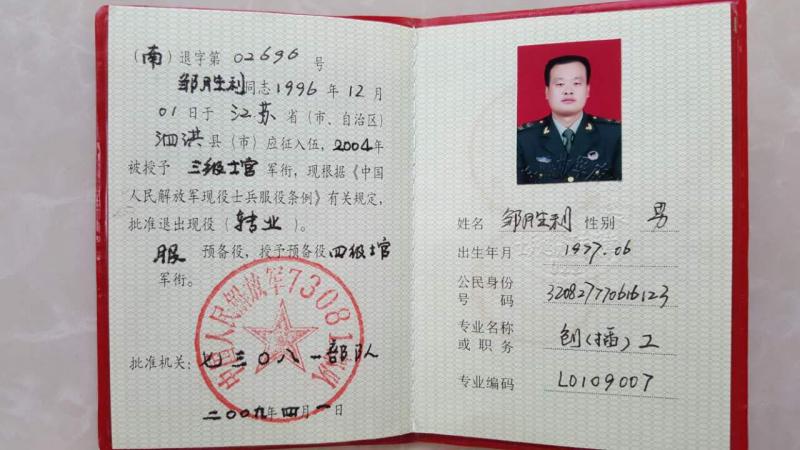 (南) 退字第 02696 号
邹胜利同志1996年12月
01日于江苏省(市、自治区)
泗洪县(市)应征入伍,2004年
被授予 三级士官 军衔,现根据《中国
人民解放军现役士兵服役条例》有关规定,
批准退出现役(转业)。
服 预备役,授予预备役四级士官
军衔。
中国人民解放军73081部队
批准机关:七三〇八一部队
二00九年四月一日
姓名 邹胜利 性别 男
出生年月 1977.06
公民身份
号码 320827770616123
专业名称
或职务 刨(插)工
专业编码 L0109007